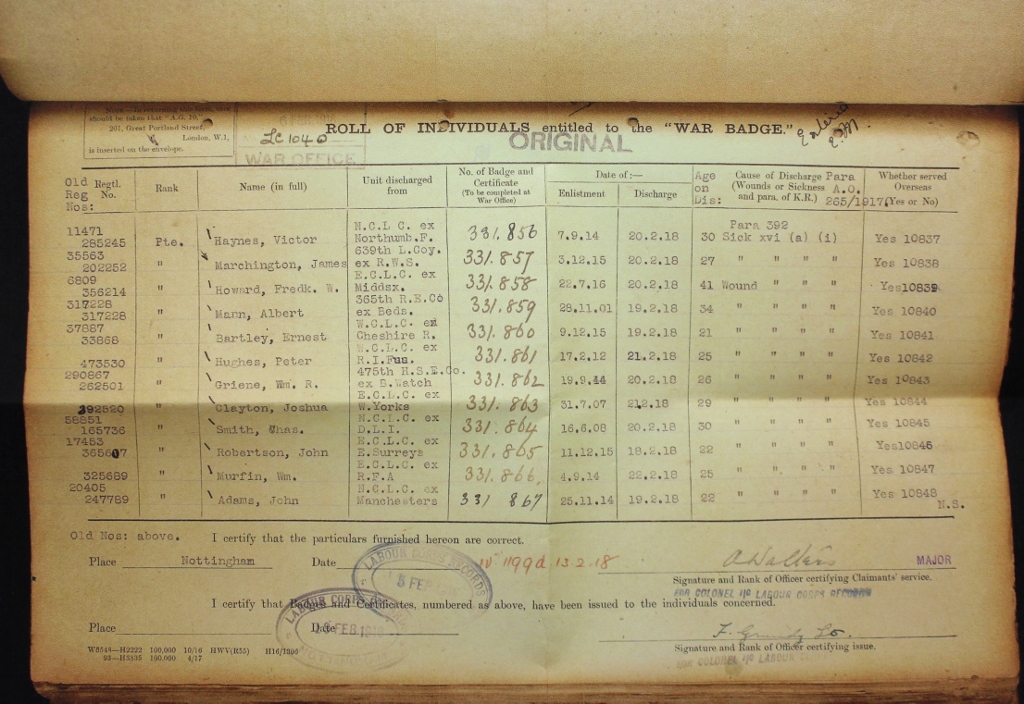 should be taken that "A.G. 10,
261, Great Portland Street,
London, W.1,
is inserted on the envelope.
LC 1040
WAR OFFICE
ROLL OF INDIVIDUALS entitled to the "WAR BADGE."
ORIGINAL
Old Reg Nos: Regtl. No. Rank Name (in full) Unit discharged from No. of Badge and Certificate (To be completed at War Office) Date of:— Enlistment Discharge Age on Dis: Cause of Discharge (Wounds or Sickness and para. of K.R.) Para A.O. 265/1917 Whether served Overseas (Yes or No)
11471 N.C.L.C. ex Para 392
285245 Pte. Haynes, Victor Northumb.F. 331.856 7.9.14 20.2.18 30 Sick xvi (a) (i) Yes 10837
35563 639th L.Coy.
202252 " Marchington, James ex R.W.S. 331.857 3.12.15 20.2.18 27 " " " " Yes 10838
6809 E.C.L.C. ex
356214 " Howard, Fredk. W. Middsx. 331.858 22.7.16 20.2.18 41 Wound " " " Yes10839
317228 365th R.E.Co
317228 " Mann, Albert ex Beds. 331.859 28.11.01 19.2.18 34 " " " " Yes 10840
37887 W.C.L.C. ex
33868 " Bartley, Ernest Cheshire R. 331.860 9.12.15 19.2.18 21 " " " " Yes 10841
N.C.L.C. ex
473530 " Hughes, Peter R.I.Fus. 331.861 17.2.12 21.2.18 25 " " " " Yes 10842
290867 475th H.S.E.Co.
262501 " Griene, Wm. R. ex B.Watch 331.862 19.9.44 20.2.18 26 " " " " Yes 10843
E.C.L.C. ex
392520 " Clayton, Joshua W.Yorks 331.863 31.7.07 212.18 29 " " " " Yes 10844
58851 N.C.L.C. ex
165736 " Smith, Chas. D.L.I. 331.864 16.6.08 20.2.18 30 " " " " Yes 10845
17483 E.C.L.C. ex
365607 " Robertson, John E.Surreys 331.865 11.12.15 18.2.18 22 " " " " Yes10846
E.C.L.C. ex
325689 " Murfin, Wm. R.F.A 331.866. 4.9.14 22.2.18 25 " " " " Yes 10847
20405 N.C.L.C. ex
247789 " Adams, John Manchesters 331 867 25.11.14 19.2.18 22 " " " " Yes 10848
N.S.
Old Nos: above. I certify that the particulars furnished hereon are correct.
Place Nottingham Date 13 2.18 MAJOR
LABOUR CORPS RECORDS
Signature and Rank of Officer certifying Claimants' service.
FOR COLONEL I/c LABOUR CORPS RECORDS
I certify that Badges and Certificates, numbered as above, have been issued to the individuals concerned.
LABOUR CORPS
Place Date
FEB
Signature and Rank of Officer certifying issue.
FOR COLONEL I/c LABOUR
W8548—H2222 100,000 10/16 HWV(R55) H16/1300
93—H3835 100,000 4/17